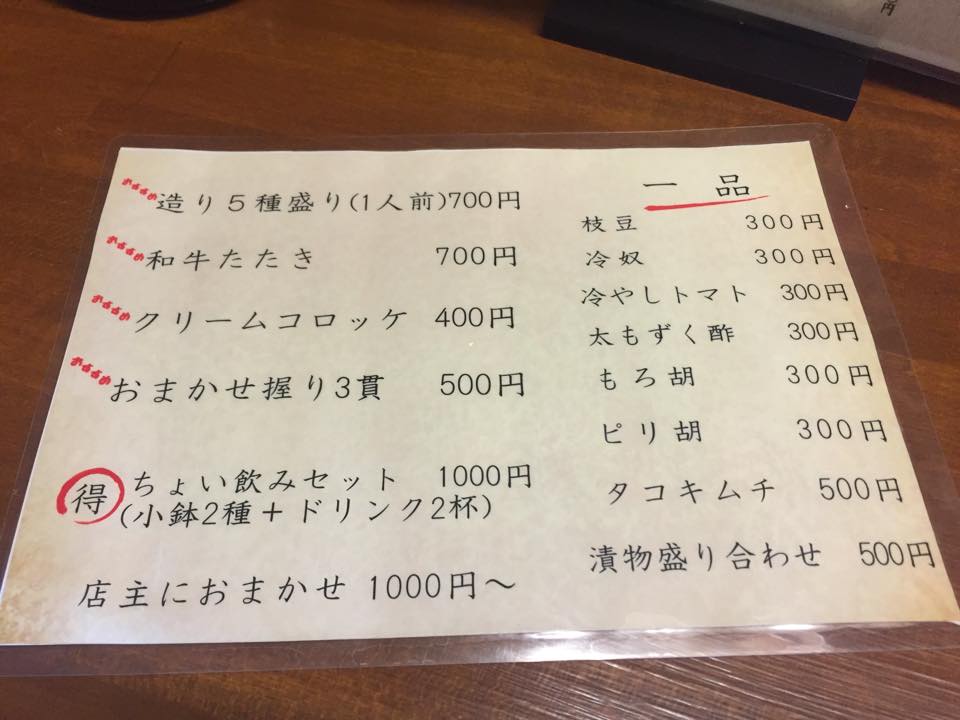 おすすめ 造り5種盛り(1人前)700円
おすすめ 和牛たたき 700円
おすすめ クリームコロッケ 400円
おすすめ おまかせ握り3貫 500円
得 ちょい飲みセット 1000円
(小鉢2種＋ドリンク2杯)
店主におまかせ 1000円～
一品
枝豆 300円
冷奴 300円
冷やしトマト 300円
太もずく酢 300円
もろ胡 300円
ピリ胡 300円
タコキムチ 500円
漬物盛り合わせ 500円
円